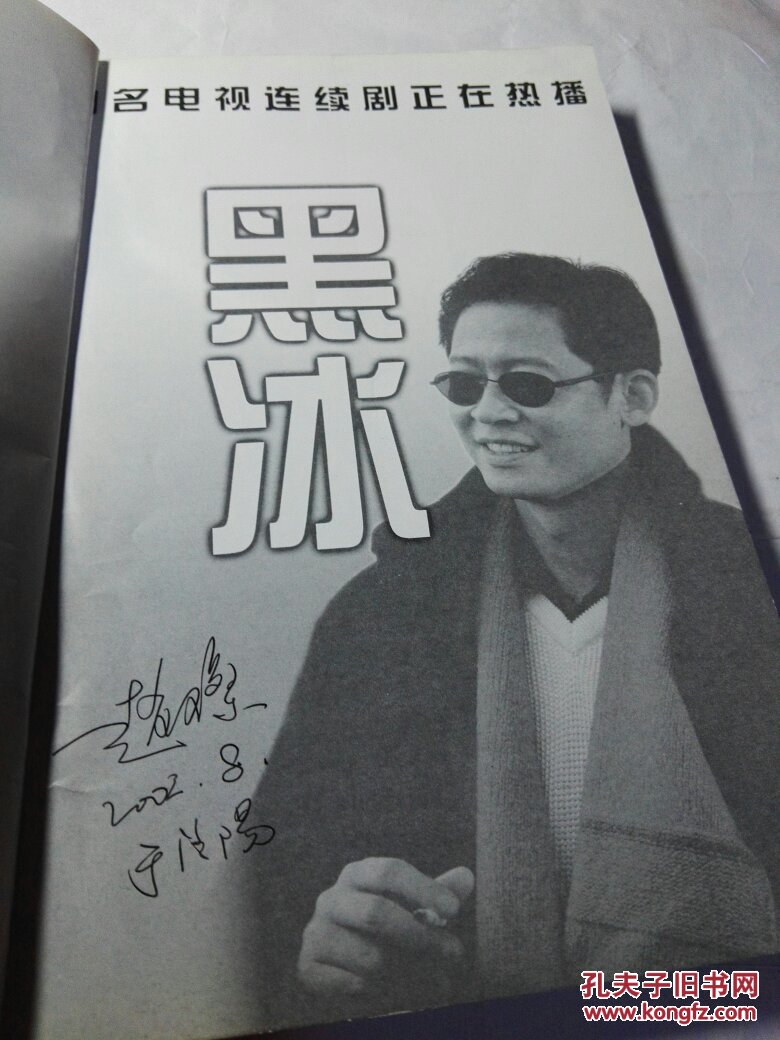 名电视连续剧正在热播
黑
冰
2002.8.
于沈阳
孔夫子旧书网
www.kongfz.com